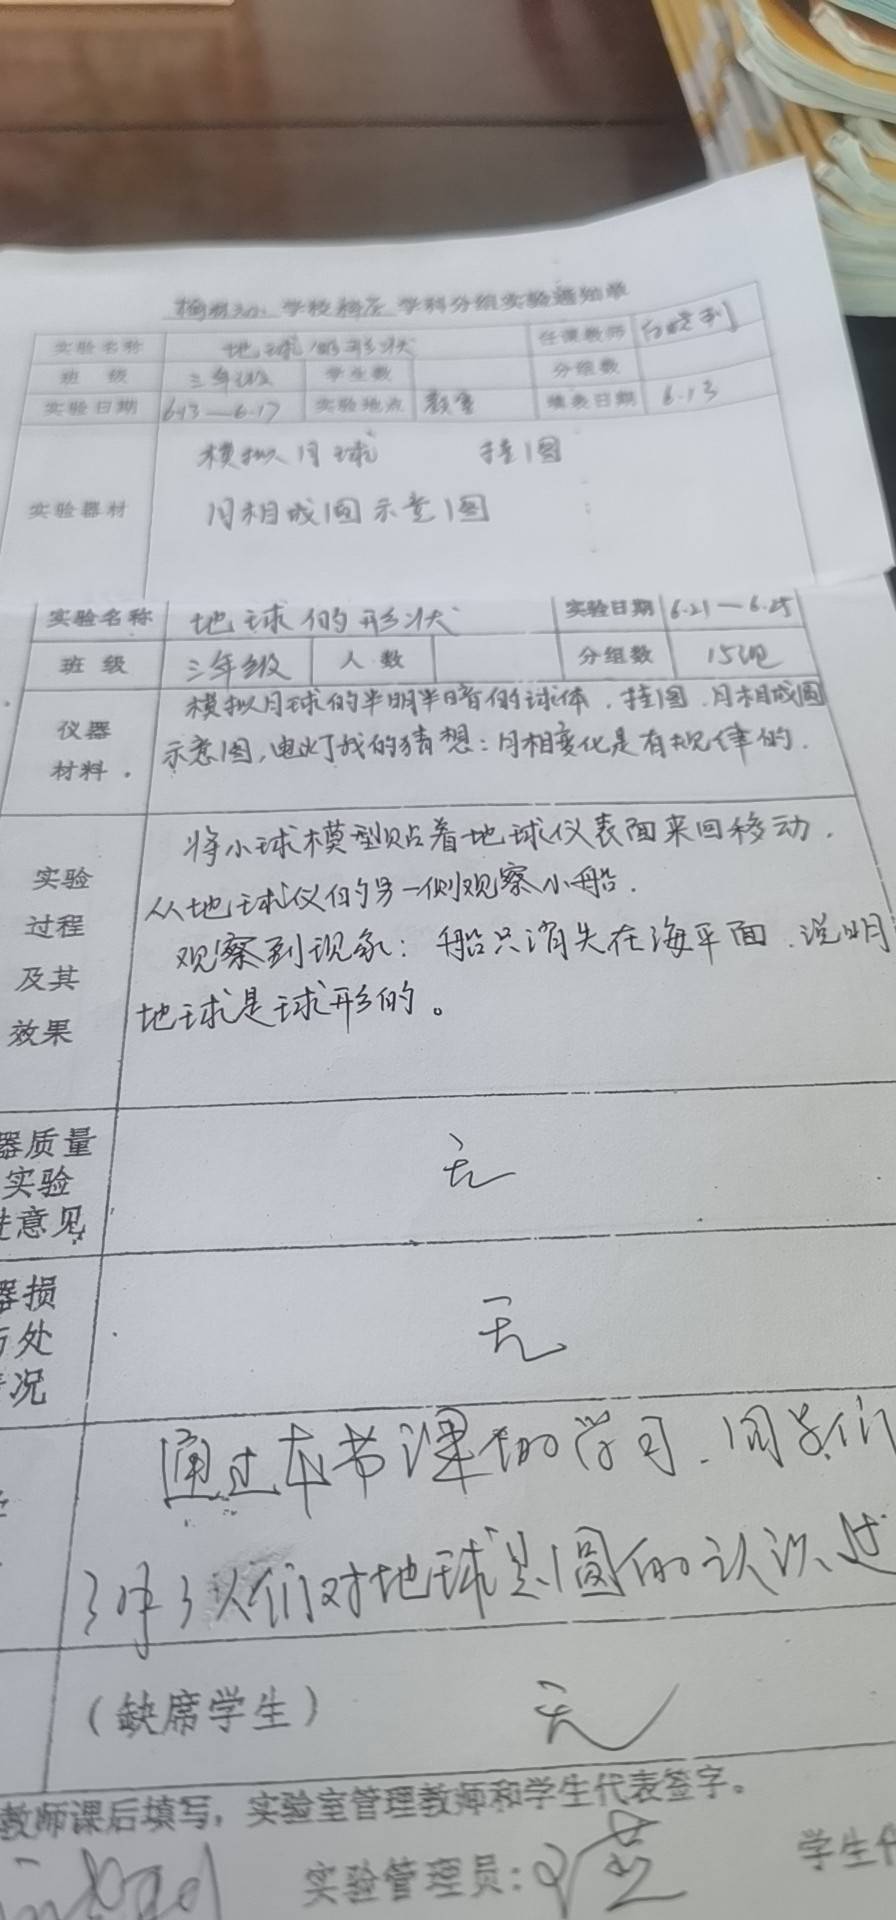 学校 科学 学科分组实验通知单
实验名称 地球的形状 任课教师
班 级 三年级 学生数 分组数
实验日期 6.13—6.17 实验地点 教室 填表日期 6.13
模拟月球 挂图
实验器材 月相成因示意图
实验名称 地球的形状 实验日期 6.21—6.25
班 级 三年级 人 数 分组数 15组
仪器 模拟月球的半明半暗的球体,挂图,月相成因
材料 示意图,电灯我的猜想:月相变化是有规律的.
实验 将小球模型贴着地球仪表面来回移动.
过程 从地球仪的另一侧观察小船.
及其 观察到现象:船只消失在海平面,说明
效果 地球是球形的。
器质量
实验 无
进意见
器损
与处 无
情况
通过本节课的学习,同学们
了解了人们对地球是圆的认识过
(缺席学生) 无
教师课后填写,实验室管理教师和学生代表签字。
实验管理员: 学生代